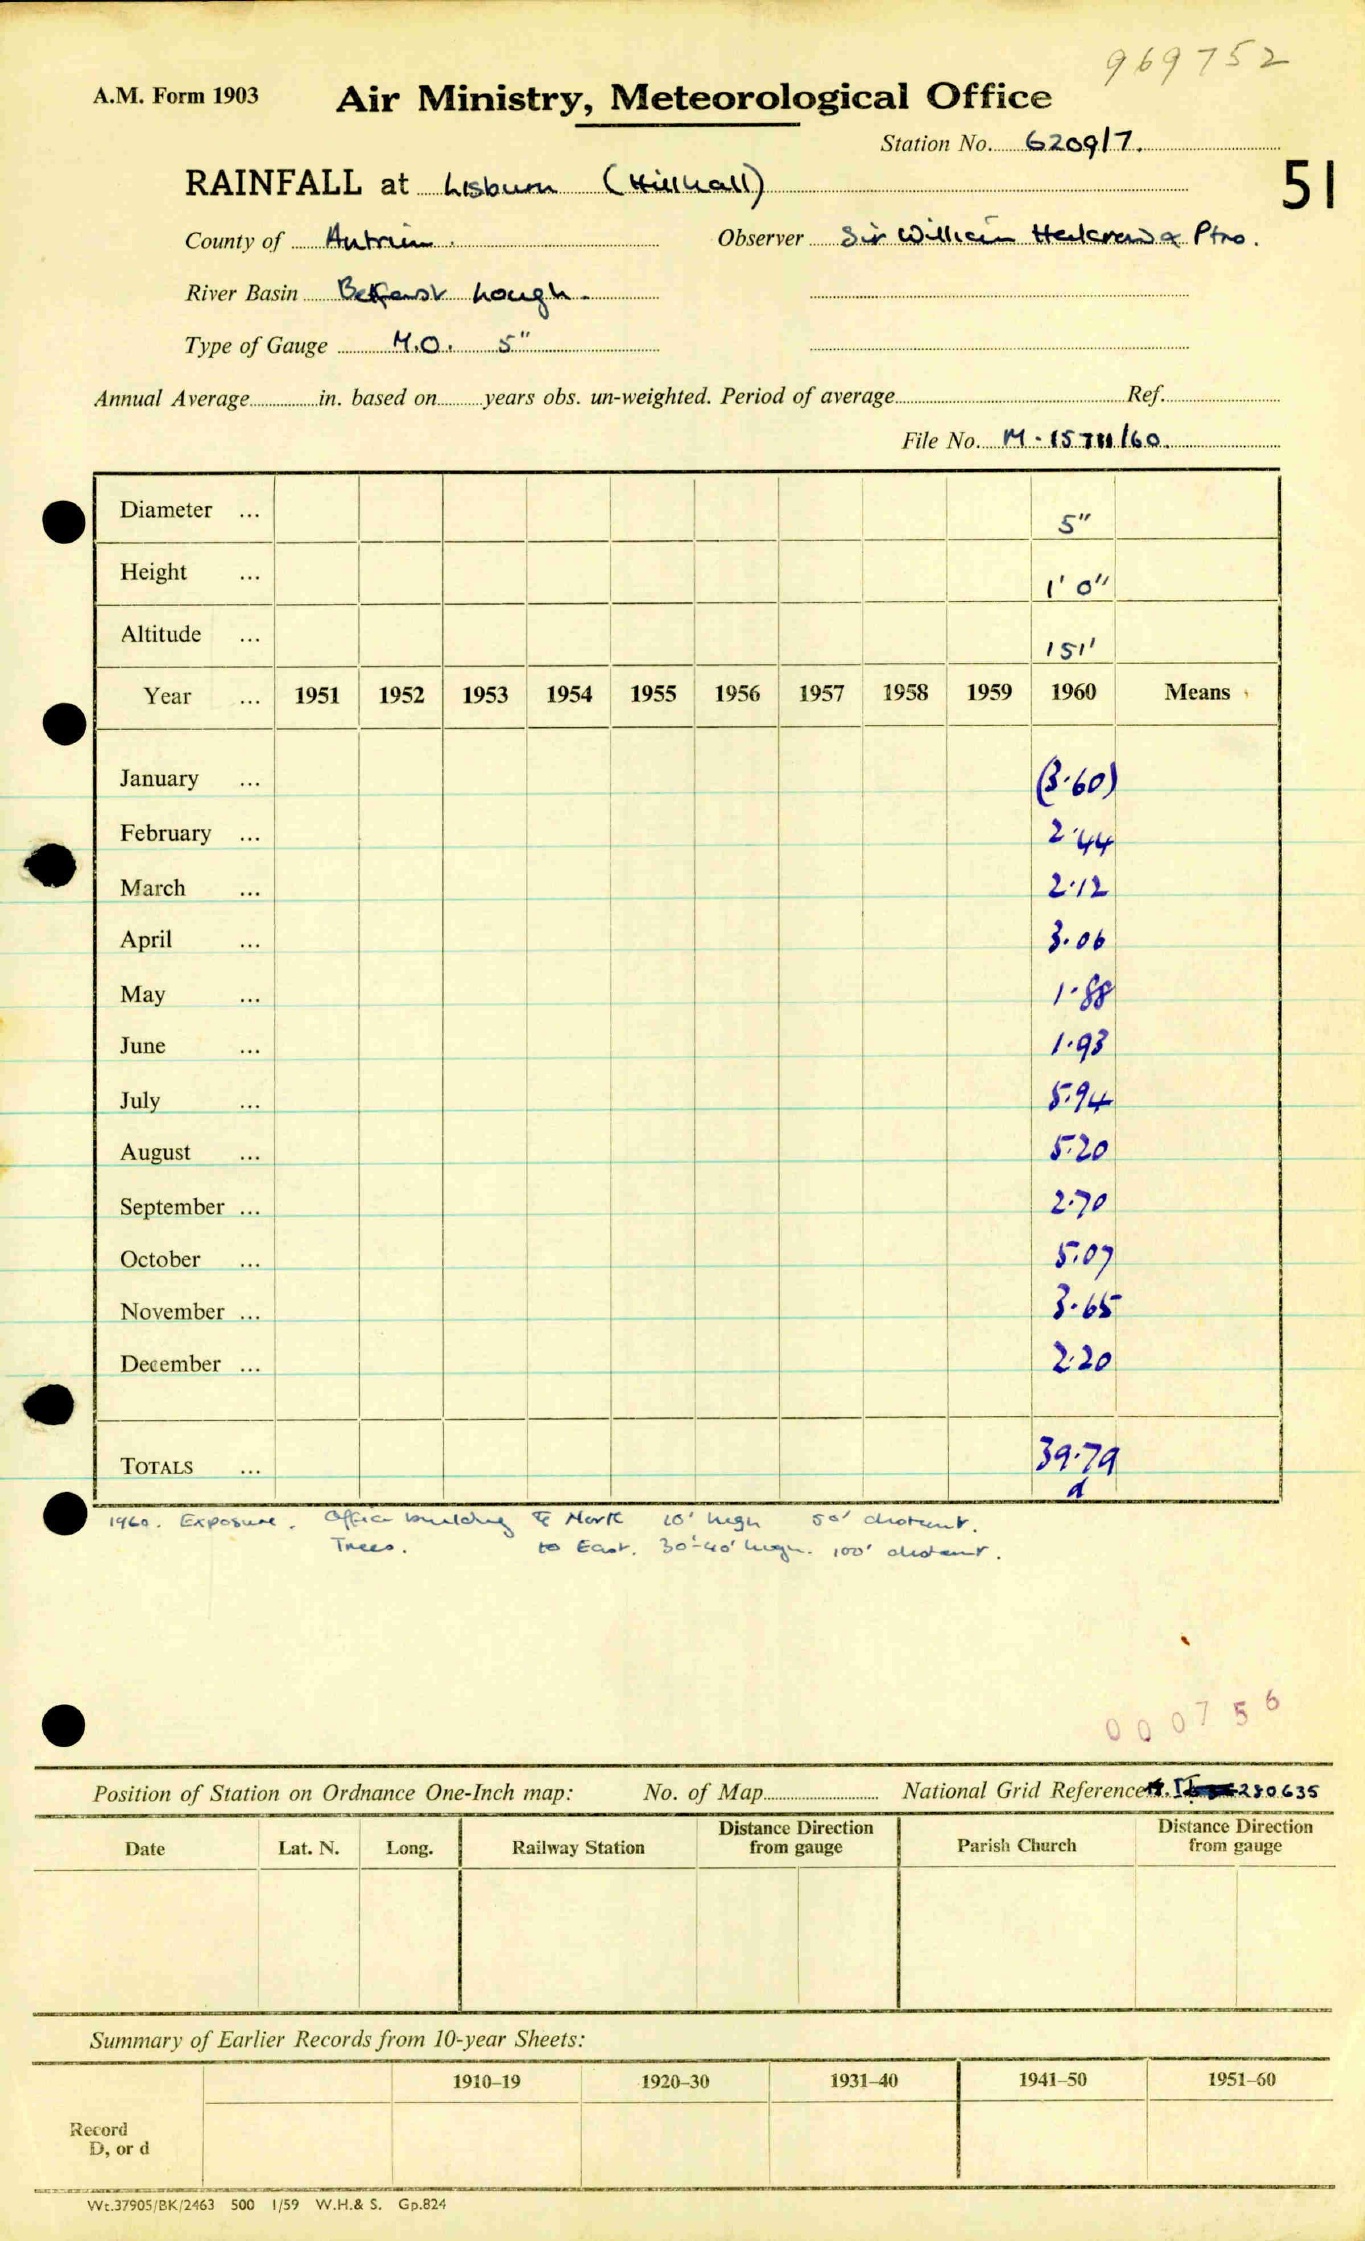 969752
A.M. Form 1903 Air Ministry, Meteorological Office
Station No. 6209/7.
RAINFALL at Lisburn (Hillhall) 51
County of Antrim. Observer Sir William & Ptns.
River Basin Belfast Lough.
Type of Gauge M.O. 5"
Annual Average in. based on years obs. un-weighted. Period of average Ref.
File No. M. /60.
Diameter ... 5"
Height ... 1' 0"
Altitude ... 151'
Year ... 1951 1952 1953 1954 1955 1956 1957 1958 1959 1960 Means
January ... (3.60)
February ... 2.44
March ... 2.12
April ... 3.06
May ... 1.88
June ... 1.93
July ... 5.94
August ... 5.20
September ... 2.70
October ... 5.07
November ... 3.65
December ... 2.20
TOTALS ... 39.79
d
1960. Exposure. Office building to North 10' high 50' distant.
Trees. to East. 30'-40' high. 100' distant.
000756
Position of Station on Ordnance One-Inch map: No. of Map National Grid Reference 280635
Date Lat. N. Long. Railway Station Distance Direction from gauge Parish Church Distance Direction from gauge
Summary of Earlier Records from 10-year Sheets:
1910–19 1920–30 1931–40 1941–50 1951–60
Record
D, or d
Wt.37905/BK/2463 500 1/59 W.H.& S. Gp.824